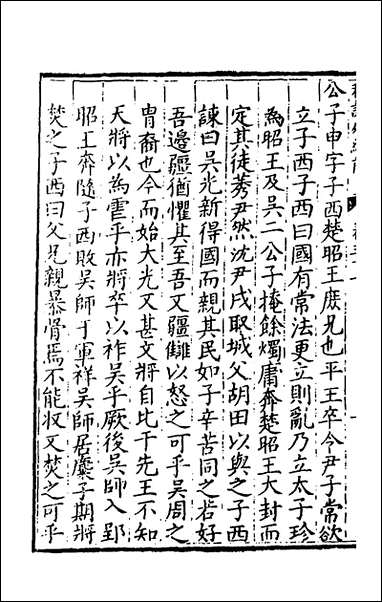 公子申字子西楚昭王庶兄也平王卒令尹子常欲
立子西子西曰國有常法更立則亂乃立太子珍
為昭王及吳二公子掩餘燭庸奔楚昭王大封而
定其徒莠尹然沈尹戌取城父胡田以與之子西
諫曰吳光新得國而親其民如子辛苦同之若好
吾邊疆猶懼其至吾又疆讎以怒之可乎吳周之
胄裔也今而始大光又甚文將自比于先王不知
天將以為虐乎亦將卒以祚吳乎厥後吳師入郢
昭王奔隨子西敗吳師于軍祥吳師居麇子期將
焚之子西曰父兄親暴骨焉不能收又焚之可乎